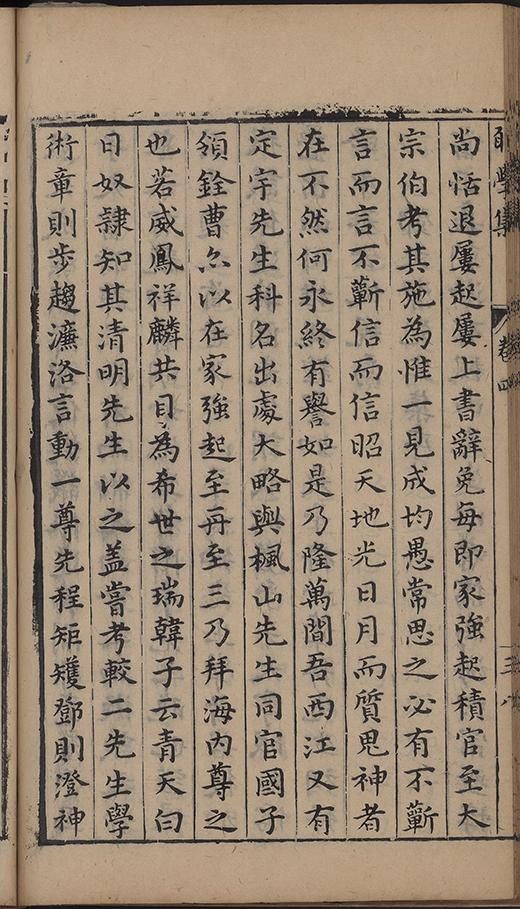 學集
卷四
三八
尚恬退屢起屢上書辭免每即家強起積官至大
宗伯考其施為惟一見成均愚常思之必有不蘄
言而言不蘄信而信昭天地光日月而質鬼神者
在不然何永終有譽如是乃隆萬間吾西江又有
定宇先生科名出處大略與楓山先生同官國子
領銓曹亦以在家強起至再至三乃拜海內尊之
也若威鳳祥麟共目為希世之瑞韓子云青天白
日奴隷知其清明先生以之盖嘗考較二先生學
術章則步趨濂洛言動一尊先程矩矱鄧則澄神